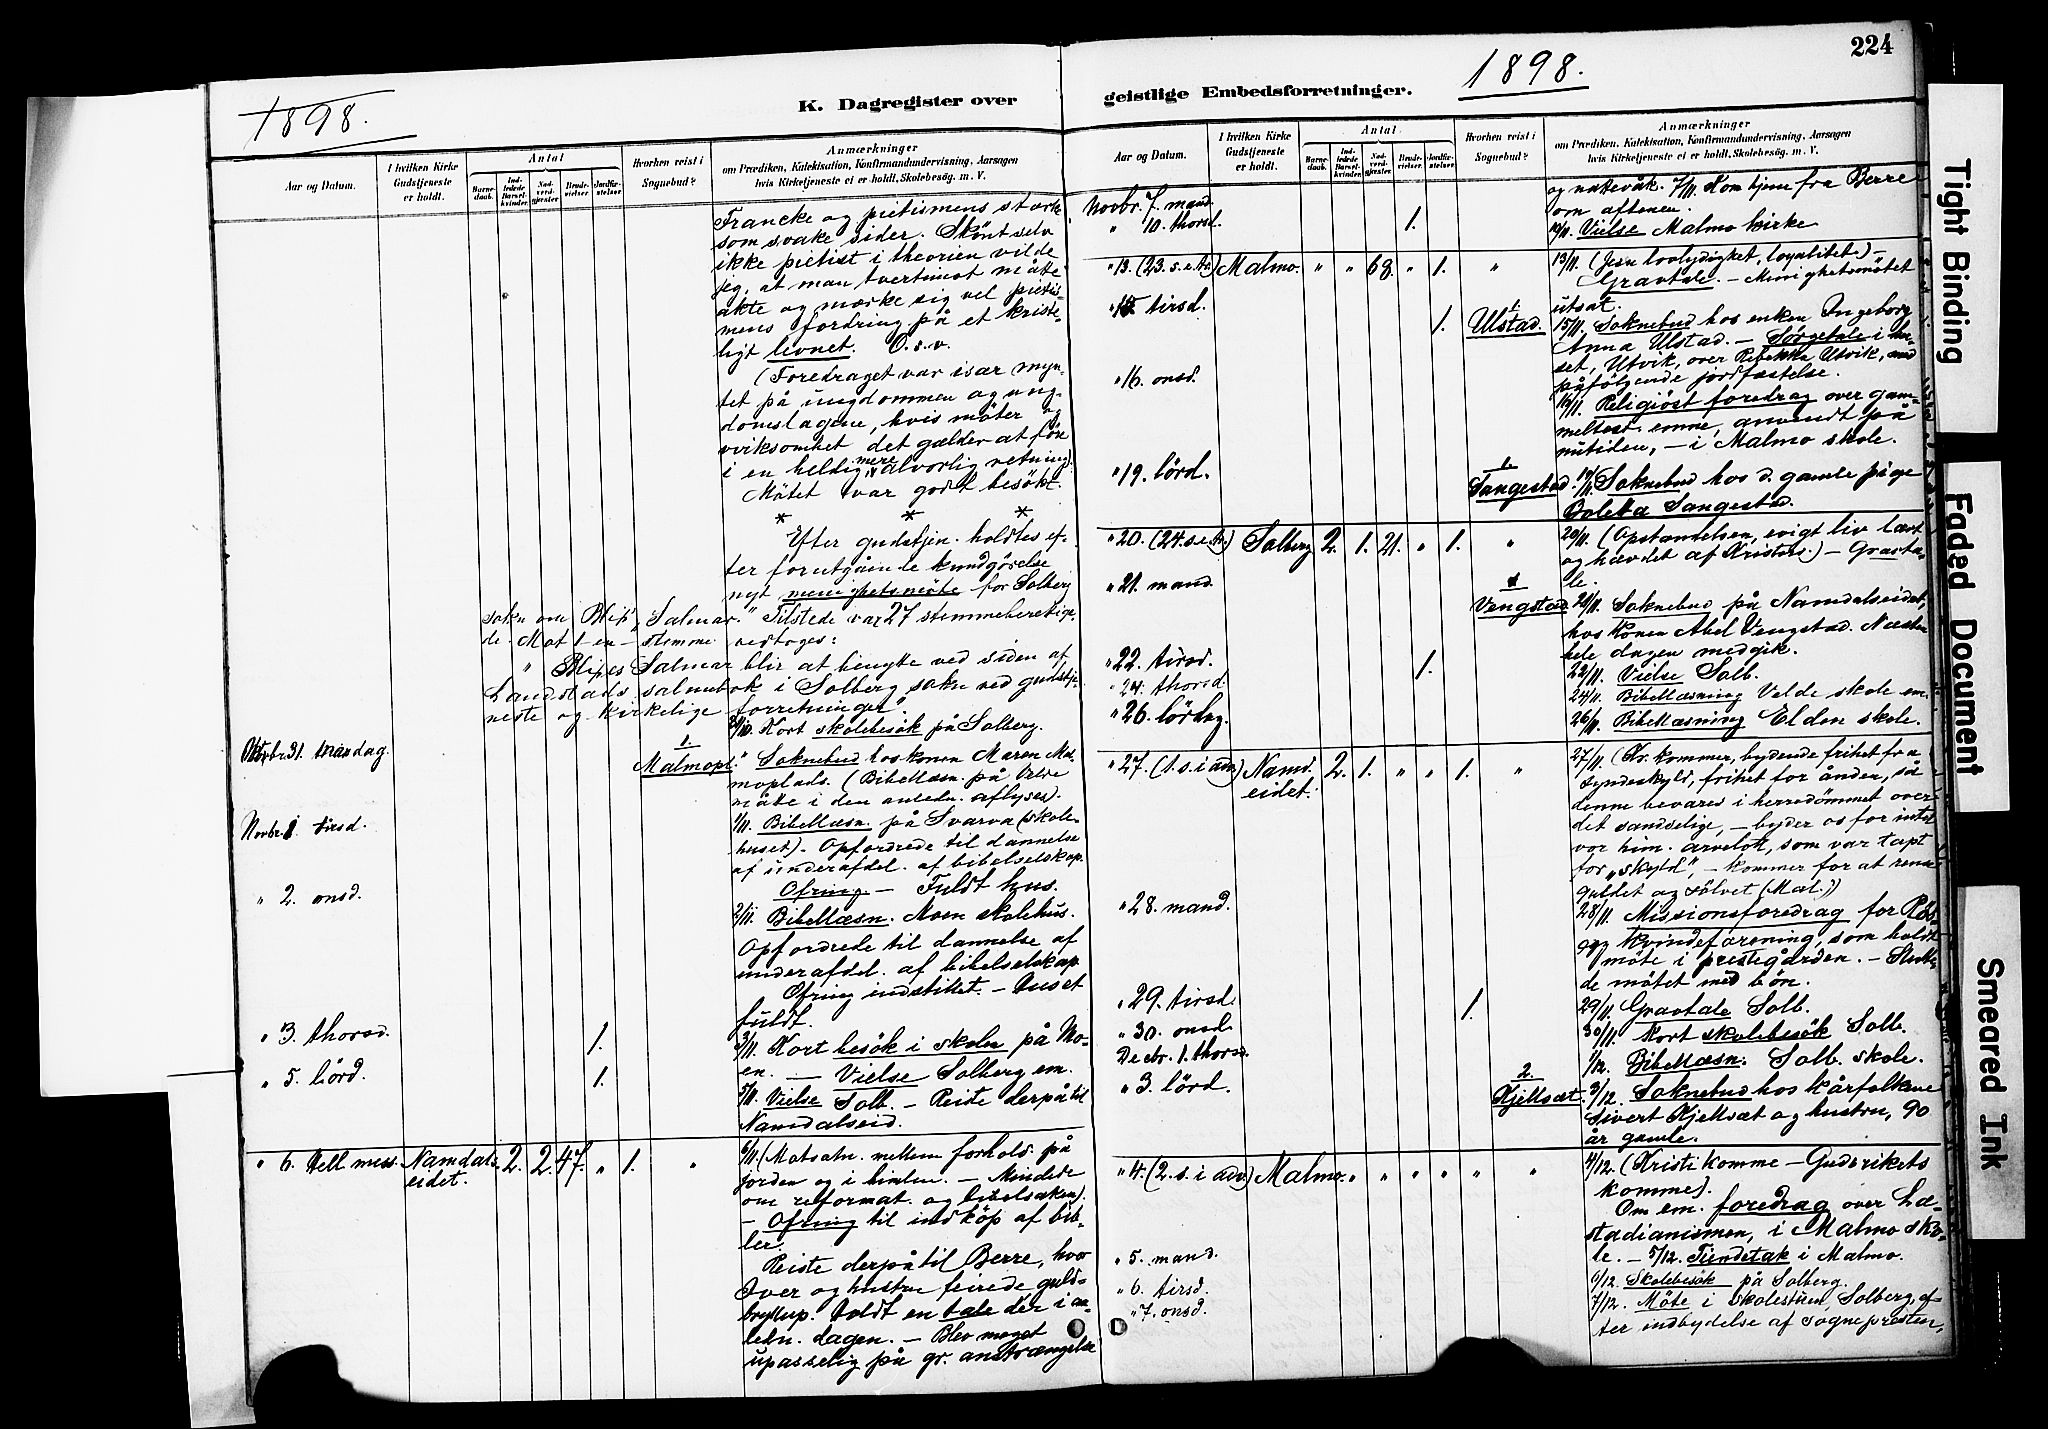 1898.
K. Dagregister over
Aar og Datum.
I hvilken Kirke Gudstjeneste er holdt.
Antal
Barne-daab.
Ind-ledede Barsel-kvinder.
Nad-verd-gjester.
Brude-vielser.
Jordfæ-stelser.
Hvorhen reist i Sognebud?
Anmærkninger
om Prædiken, Katekisation, Konfirmandundervisning, Aarsagen
hvis Kirketjeneste ei er holdt, Skolebesög, m. V.
Francke og pietismens sterke
som svake sider. Skönt selv
ikke pietist i theorien vilde
jeg, at man tvertimot måtte
akte og mærke sig vel pietis-
mens fordring på et kriste-
ligt levnet. O. s. v.
(Foredraget var især myn-
tet på ungdommen og ung-
domslagene, hvis möter og
virksomhet det gælder at före
i en heldig mere alvorlig retning).
Mötet var godt besökt.
* * *
Efter gudstjen. holdtes ef-
ter forutgående kundgörelse
nyt menighetsmöte for Solberg
sokn om Blix' "Salmar." Tilstede var 27 stemmeberettige-
de. Mot 1 en stemme vedtoges:
" Blixes Salmar blir at benytte ved siden af
Landstads salmebok i Solberg sokn ved gudstje-
neste og kirkelige forretninger".
31/10. Kort skolebesök på Solberg.
Oktbr. 31. mandag.
1. Malmopl.
" Soknebud hos konen Maren Mal-
moplads. (Bibellæsn. på
måtte i den anledn. aflyses).
Novbr. 1 tirsd.
1/11. Bibellæsn. på Svarva (skole-
huset). Opfordrede til dannelse
af underafdel. af bibelselskap.
Ofring — Fuldt hus.
" 2. onsd.
2/11. Bibellæsn. Moen skolehus.
Opfordrede til dannelse af
underafdel. af bibelselskap.
Ofring indstillet. — Huset
fuldt.
" 3. thorsd. 1.
3/11. Kort besök i skolen på Mo-
en. — Vielse Solberg em.
" 5. lörd. 1.
5/11. Vielse Solb. — Reiste derpå til
Namdalseid.
" 6. Hell mess. Namdals-eidet. 2. 2. 47. " 1. "
6/11. (Motsætn. mellem forhold. på
jorden og i himlen. — Mindede
om reformat. og bibelsaken).
— Ofring til indköp af bib-
ler.
Reiste derpå til Berre, hvor
Iver og hustru feirede guld-
bryllup. Holdt en tale der i an-
ledn. dagen. — Blev meget
upasselig på gr. anstrængelse
geistlige Embedsforretninger.
1898.
224
Aar og Datum.
I hvilken Kirke Gudstjeneste er holdt.
Antal
Barne-daab.
Ind-ledede Barsel-kvinder.
Nad-verd-gjester.
Brude-vielser.
Jordfæ-stelser.
Hvorhen reist i Sognebud?
Anmærkninger
om Prædiken, Katekisation, Konfirmandundervisning, Aarsagen
hvis Kirketjeneste ei er holdt, Skolebesög, m. V.
Novbr. 7. mand.
og nattevåk. 7/11. Kom hjem fra Berre
om aftenen.
" 10. thorsd. 1.
10/11. Vielse Malmo kirke
" 13. (23. s. e. tr.) Malmo. " " 68. " 1. "
13/11. (Jesu lovlydighet, loyalitet) —
Gravtale. — Menighetsmötet
utsat.
" 15 tirsd. 1. 1. Ulstad.
15/11. Soknebud hos enken Ingeborg
Anna Ulstad. — Sörgetale i hu-
set, Utvik, over Rebekka Utvik, med
påfölgende jordfæstelse.
" 16. onsd.
16/11. Religiöst foredrag over gam-
meltest. emne, anvendt på
nutiden, — i Malmo skole.
" 19. lörd. 1. Tangestad.
19/11. Soknebud hos d. gamle pige
Boletta Tangestad.
" 20. (24. s. e. tr.) Solberg 2. 1. 21. " 1. "
20/11. (Opstandelsen, evigt liv lært
og hævdet af Kristus.) — Gravta-
le.
" 21. mand. 1 Vengstad.
21/11. Soknebud på Namdalseidet,
hos konen Abel Vengstad. Næsten
hele dagen medgik.
" 22. tirsd. 1.
22/11. Vielse Solb.
" 24. thorsd.
24/11. Bibellæsning Velde skole em.
" 26. lördag.
26/11. Bibellæsning Elden skole.
" 27. (1. s. i adv.) Namd. eidet. 2. 1. " " 1. "
27/11. (Kr. kommer, bydende frihet fra
syndeskyld, frihet for ånden, så
denne bevares i herredömmet over
det sandselige, — byder os for intet
vor him. arvelott, som var tapt
for "skyld", — kommer for at rense
guldet og sölvet (Mal.))
" 28. mand.
28/11. Missionsforedrag for
kvindeforening, som holdt
möte i prestegården. —
de mötet med bön.
" 29. tirsd. 1.
29/11. Gravtale Solb.
" 30. onsd.
30/11. Kort skolebesök Solb.
Decbr. 1. thorsd.
1/12. Bibellæsn. Solb. skole.
" 3. lörd. 2. Kjellsæt.
3/12. Soknebud hos kårfolkene
Sivert Kjellsæt og hustru, 90
år gamle.
" 4. (2. s. i adv.) Malmo. " " " " " "
4/12. (Kristi komme — Gudsrikets
komme).
Om em. foredrag over Læ-
stadianismen, i Malmo sko-
le. — 5/12. Tiendetak i Malmo.
" 5. mand.
" 6. tirsd.
6/12. Skolebesök på Solberg.
" 7. onsd.
7/12. Möte i skolestuen, Solberg, ef-
ter indbydelse af sognepresten,
Tight Binding
Faded Document
Smeared Ink